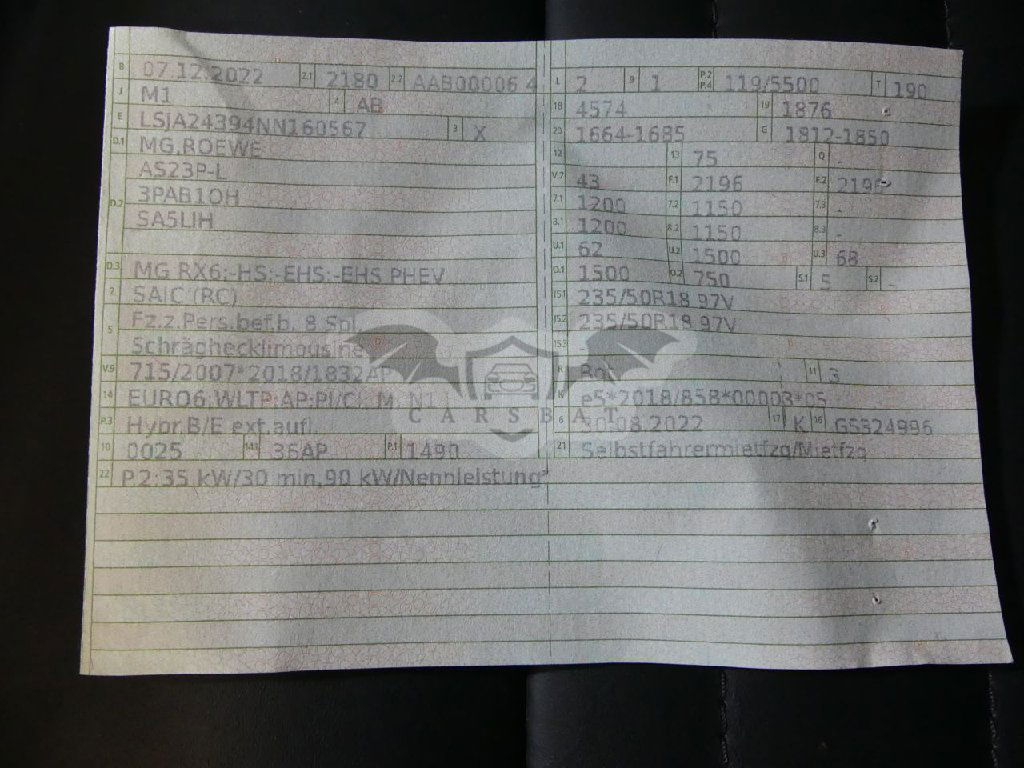 B 07.12.2022 2.1 2180 2.2 AAB00006 4
J M1 4 AB
E LSJA24394NN160567 3 X
D.1 MG.ROEWE
AS23P-L
D.2 3PAB1OH
SA5LIH
D.3 MG RX6;-HS;-EHS;-EHS PHEV
2 SAIC (RC)
5 Fz.z.Pers.bef.b. 8 Spl.
Schräghecklimousine
V.9 715/2007*2018/1832AP
14 EURO6,WLTP;AP;PI/CI, M, N1 I
P.3 Hybr.B/E ext.aufl.
10 0025 14.1 36AP P.1 1490
22 P.2:35 kW/30 min,90 kW/Nennleistung*
L 2 9 1 P.2 P.4 119/5500 T 190
18 4574 19 1876
20 1664-1685 G 1812-1850
12 13 75 Q -
V.7 43 F.1 2196 F.2 2196
7.1 1200 7.2 1150 7.3 -
8.1 1200 8.2 1150 8.3 -
U.1 62 U.2 1500 U.3 68
O.1 1500 O.2 750 S.1 5 S.2 -
15.1 235/50R18 97V
15.2 235/50R18 97V
15.3
R 11 3
K e5*2018/858*00003*05
6 30.08.2022 17 K 16 GS324996
21 Selbstfahrermietfzg/Mietfzg
CARSBAT